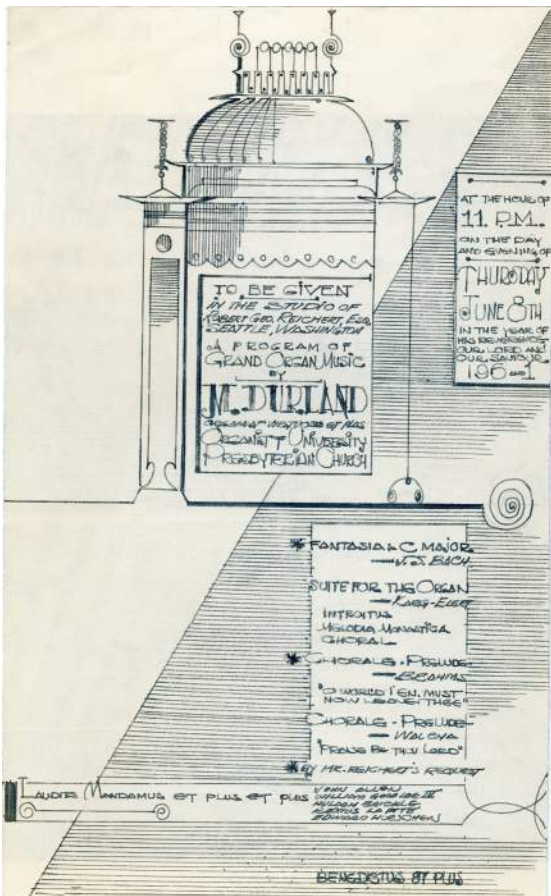 TO BE GIVEN
IN THE STUDIO OF
ROBERT GEO. REICHERT, ESQ.
SEATTLE, WASHINGTON
A PROGRAM OF
GRAND ORGAN MUSIC
BY
M. DURLAND
ET PLUS
ORGANIST UNIVERSITY
PRESBYTERIAN CHURCH
AT THE HOUR OF
11 P.M.
ON THE DAY
AND EVENING OF
THURSDAY
JUNE 8TH
IN THE YEAR OF
HIS REVERENCE
OUR LORD AND
OUR SAVIOUR
196 and 1
* FANTASIA C MAJOR
— J.S. BACH
SUITE FOR THE ORGAN
— KARG-ELERT
INTROITUS
MELODIA MONASTICA
CHORAL
* CHORALE - PRELUDE
— BRAHMS
"O WORLD I E'EN MUST
NOW LEAVE THEE"
CHORALE - PRELUDE
— WALCHA
"PRAISE BE THOU LORD"
* BY MR. REICHERT'S REQUEST
LAUDITE MANDAMUS ET PLUS ET PLUS
JOHN ALLEN
WILLIAM
EDWARD
BENEDICTUS ET PLUS